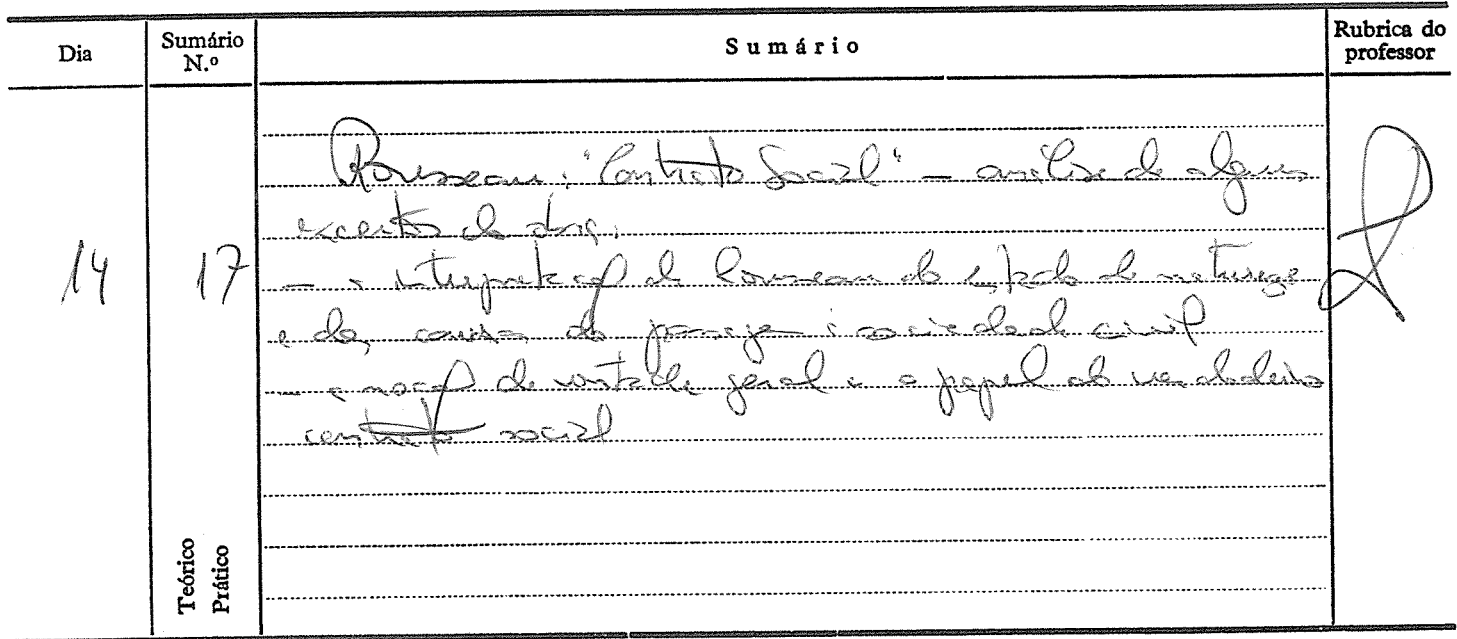 Dia
Sumário
N.º
Sumário
Rubrica do
professor
14
17
Rousseau: "Contrato Social" – análise de alguns
excertos da obra.
– a interpretação de Rousseau do estado de natureza
e das causas da passagem à sociedade civil
– a noção de vontade geral e o papel do verdadeiro
contrato social
Teórico
Prático